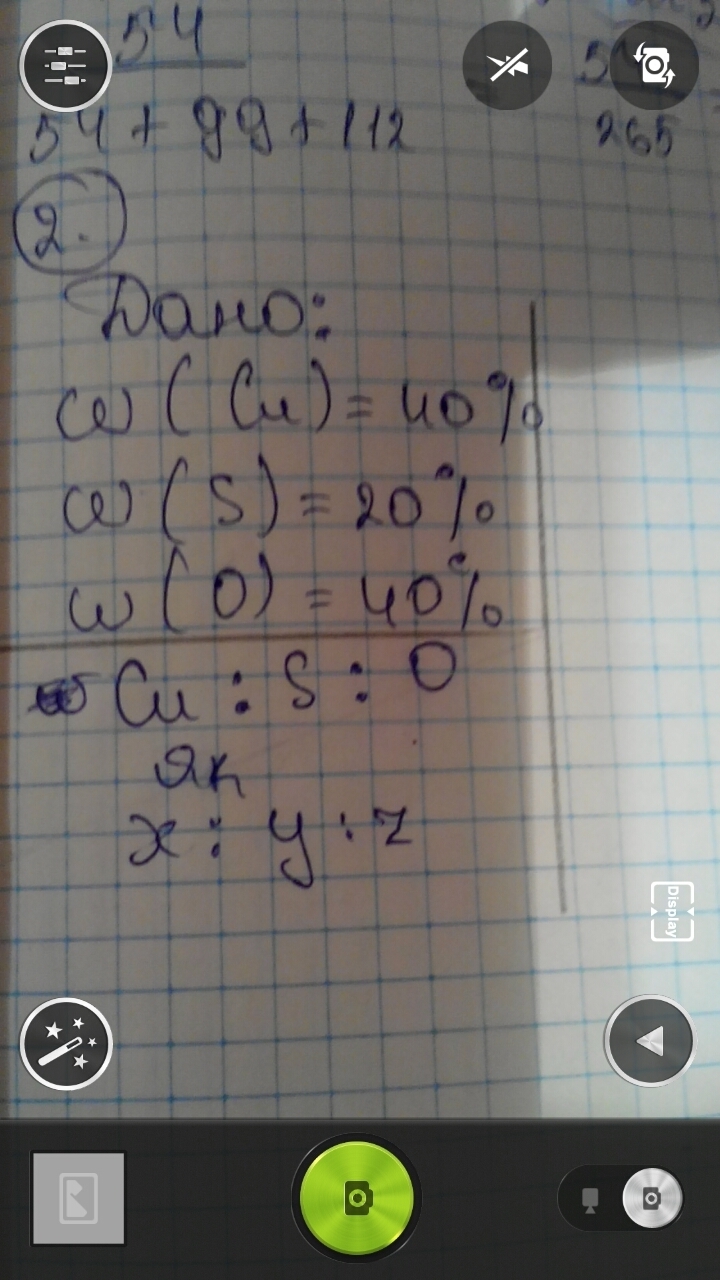 54
54 + 99 + 112
265
2.
Дано:
w ( Cu ) = 40%
w ( S ) = 20%
w ( O ) = 40%
Cu : S : O
як
x : y : z
Display